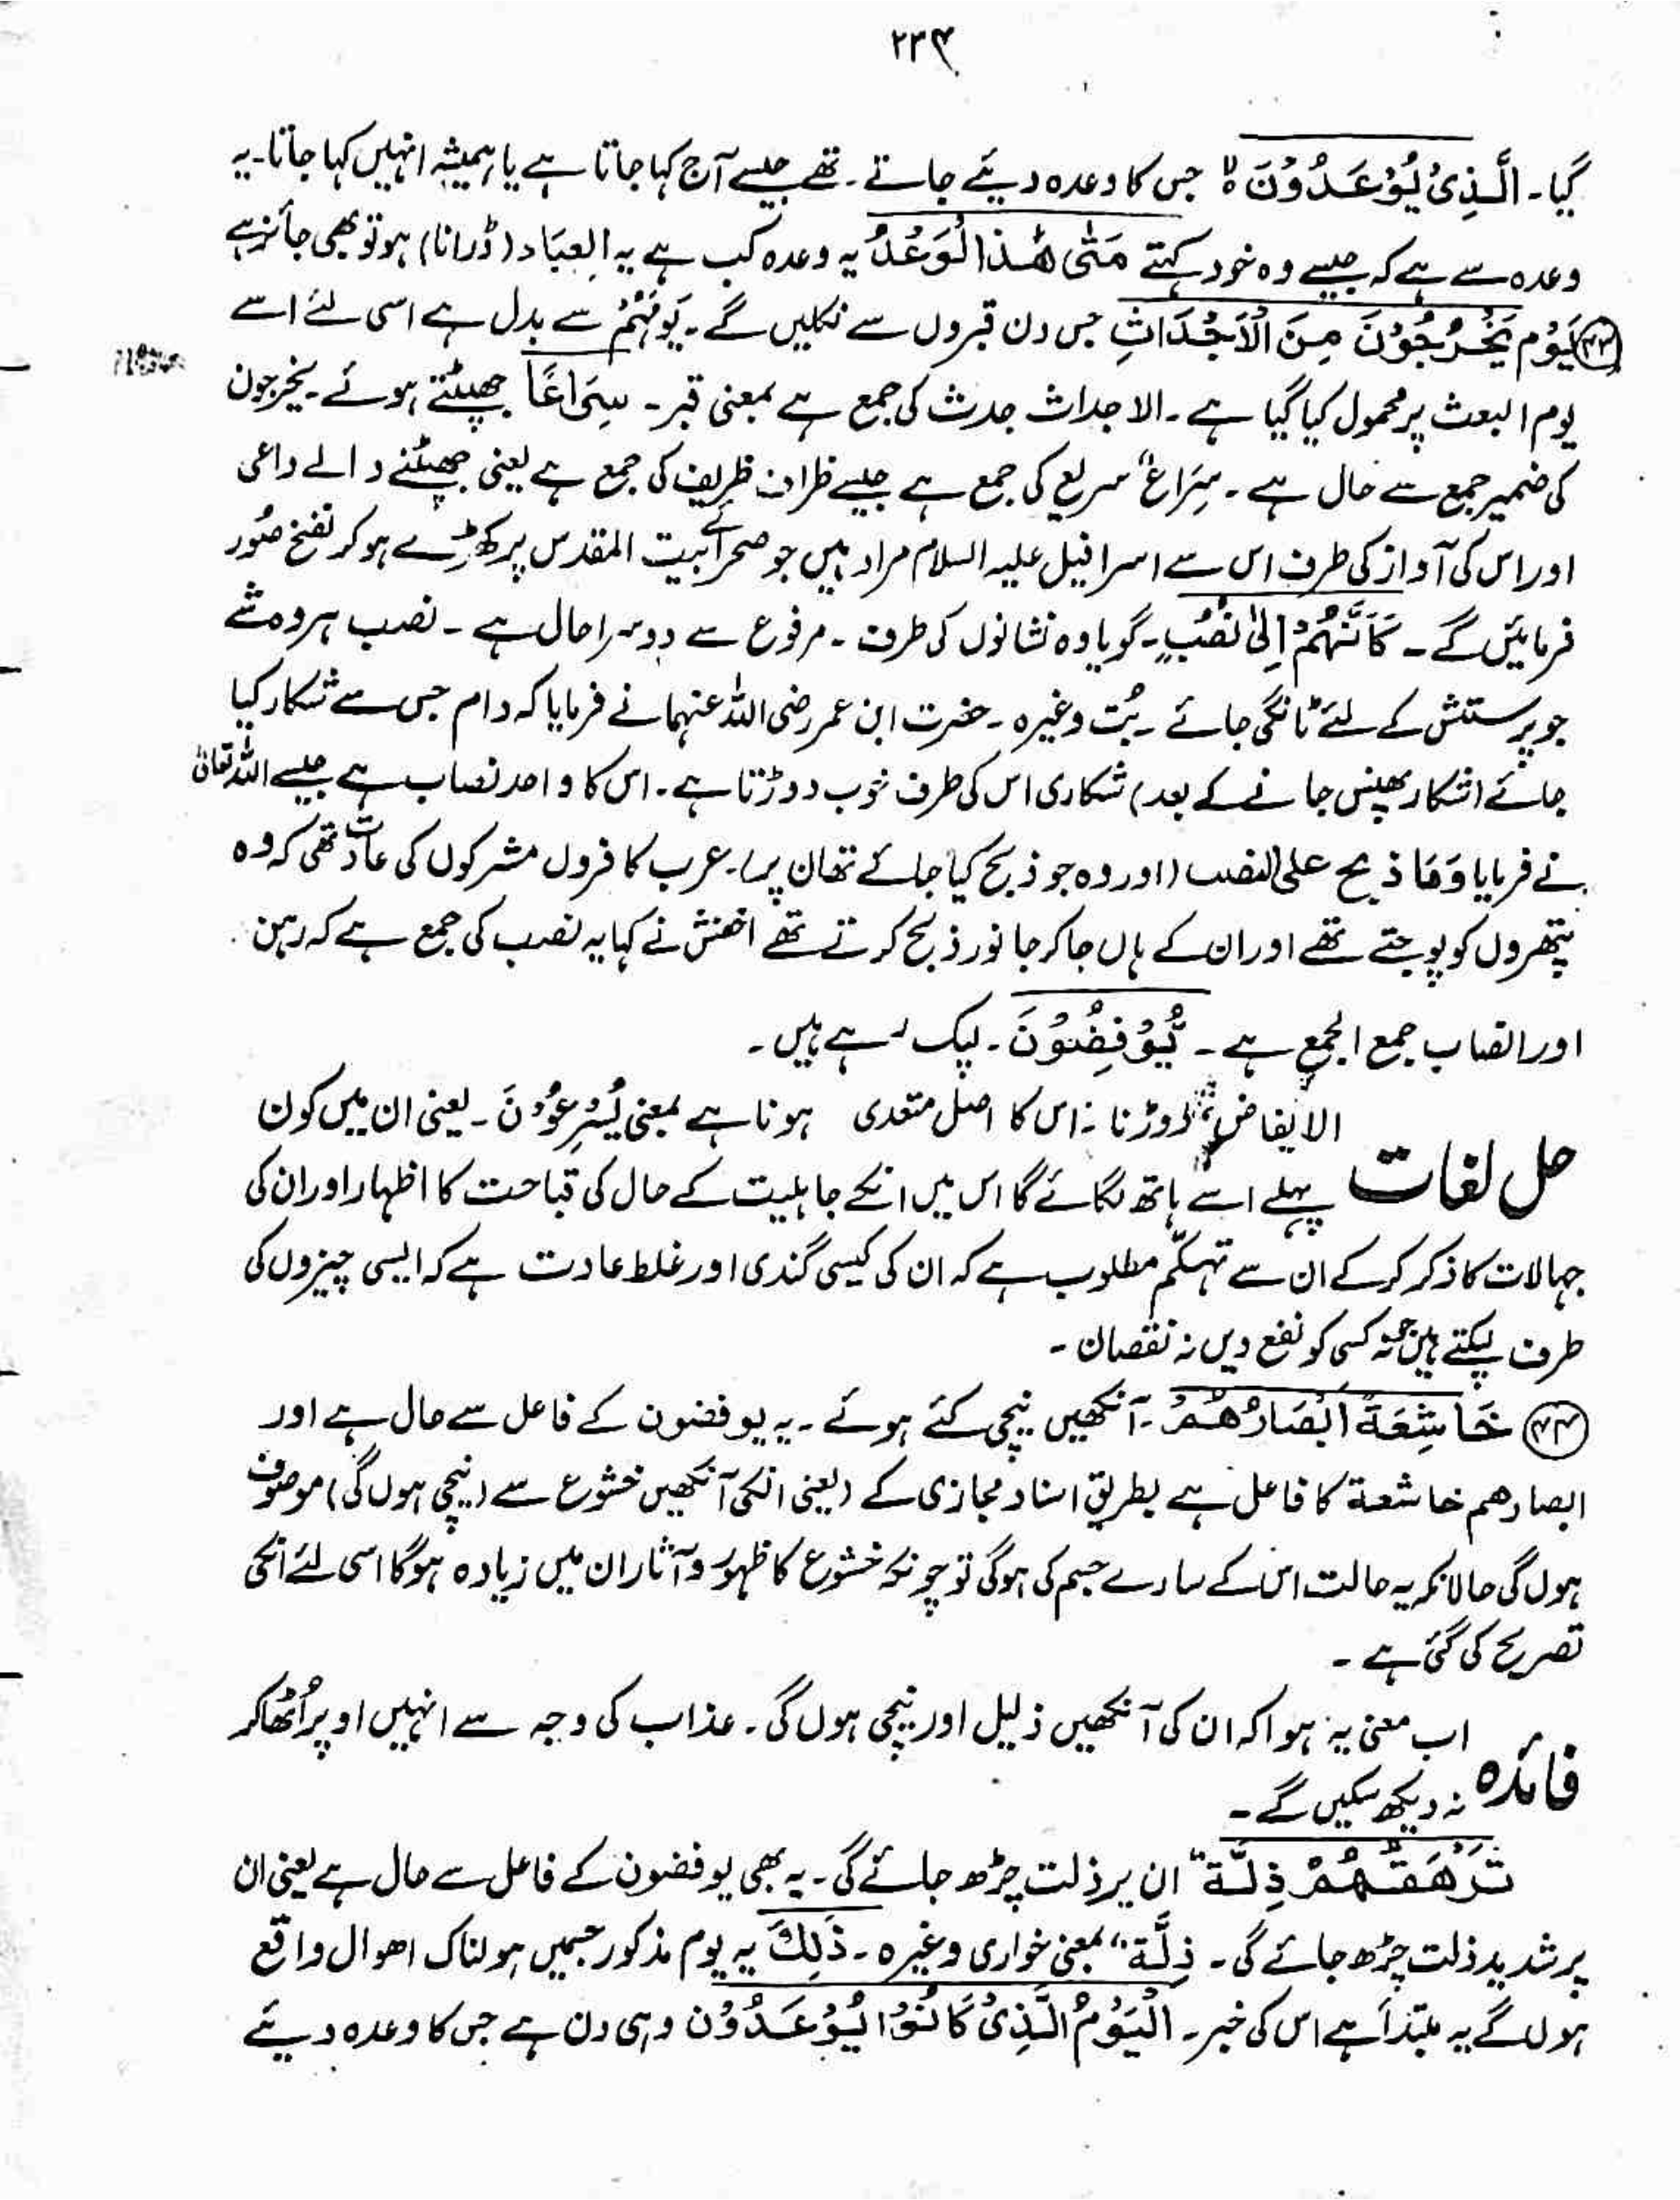 ۲۳۴
گیا۔ الَّذِیْ یُوْعَدُوْنَ ۵ لا جس کا وعدہ دیئے جاتے۔ تھے جیسے آج کہا جاتا ہے یا ہمیشہ انہیں کہا جاتا۔ یہ
وعدہ سے ہے کہ جیسے وہ خود کہتے مَتٰی ھٰذَا لْوَعْدُ یہ وعدہ کب ہے یہ الیعَاد (ڈرانا) ہو تو بھی جائز ہے
۴۳ یَوْم یَخْرُجُوْنَ مِنَ الْاَجْدَاثِ جس دن قبروں سے نکلیں گے۔ یَوْمَہُمْ سے بدل ہے اسی لئے اسے
یوم البعث پر محمول کیا گیا ہے۔ الاجداث جدث کی جمع ہے بمعنی قبر۔ سِرَاعًا جھپٹتے ہوئے۔ یخرجون
کی ضمیر جمع سے حال ہے۔ سِرَاعٌ سریع کی جمع ہے جیسے ظراف ظریف کی جمع ہے یعنی جھپٹنے والے داعی
اور اس کی آواز کی طرف اس سے اسرافیل علیہ السلام مراد ہیں جو صحرائے بیت المقدس پر کھڑے ہو کر نفخ صُور
فرمائیں گے۔ کَاَنَّہُمْ اِلٰی نُصُبٍ۔ گویا وہ نشانوں کی طرف۔ مرفوع سے دوسرا حال ہے۔ نصب ہر وہ شے
جو پرستش کے لئے ٹانگی جائے۔ بُت وغیرہ۔ حضرت ابن عمر رضی اللہ عنہما نے فرمایا کہ دام جس سے شکار کیا
جائے (شکار پھنس جانے کے بعد) شکاری اس کی طرف خوب دوڑتا ہے۔ اس کا واحد نصاب ہے جیسے اللہ تعالیٰ
نے فرمایا وَمَا ذبح علی النصب (اور وہ جو ذبح کیا جائے تھان پر)۔ عرب کا فروں مشرکوں کی عادت تھی کہ وہ
پتھروں کو پوجتے تھے اور ان کے ہاں جا کر جانور ذبح کرتے تھے اخفش نے کہا یہ نصب کی جمع ہے کہ رہن
اور انصاب جمع الجمع ہے۔ یُّوْفِضُوْنَ۔ لپک رہے ہیں۔
الایفاض دوڑنا۔ اس کا اصل متعدی ہونا ہے بمعنی یُسْرِعُوْنَ۔ یعنی ان میں کون
حل لغات پہلے اسے ہاتھ لگائے گا اس میں انکے جاہلیت کے حال کی قباحت کا اظہار اور ان کی
جہالات کا ذکر کر کے ان سے تہکّم مطلوب ہے کہ ان کی کیسی گندی اور غلط عادت ہے کہ ایسی چیزوں کی
طرف لپکتے ہیں جو نہ کسی کو نفع دیں نہ نقصان۔
۴۴ خَاشِعَةً اَبْصَارُھُمْ۔ آنکھیں نیچی کئے ہوئے۔ یہ یوفضون کے فاعل سے حال ہے اور
ابصارھم خاشعة کا فاعل ہے بطریق اسناد مجازی کے (یعنی انکی آنکھیں خشوع سے (نیچی ہوں گی) موصوف
ہوں گی حالانکہ یہ حالت اس کے سارے جسم کی ہوگی تو چونکہ خشوع کا ظہور و آثار ان میں زیادہ ہوگا اسی لئے انکی
تصریح کی گئی ہے۔
اب معنی یہ ہوا کہ ان کی آنکھیں ذلیل اور نیچی ہوں گی۔ عذاب کی وجہ سے انہیں اوپر اُٹھا کر
فائدہ نہ دیکھ سکیں گے۔
تَرْھَقُھُمْ ذِلَّةٌ ان پر ذلت چڑھ جائے گی۔ یہ بھی یوفضون کے فاعل سے حال ہے یعنی ان
پر شدید ذلت چڑھ جائے گی۔ ذِلَّةٌ بمعنی خواری وغیرہ۔ ذٰلِكَ یہ یوم مذکور جسمیں ہولناک اھوال واقع
ہوں گے یہ مبتدأ ہے اس کی خبر۔ الْیَوْمُ الَّذِیْ کَانُوْا یُوْعَدُوْن وہی دن ہے جس کا وعدہ دیئے